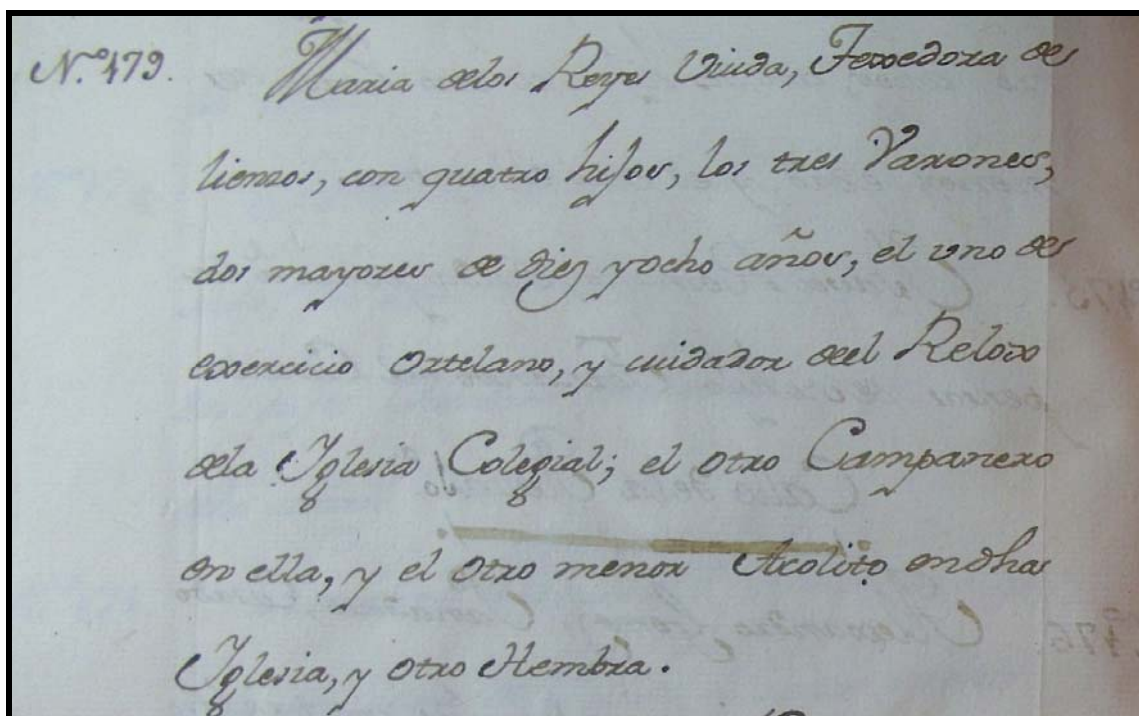 N.º 479. Maria delos Reyes Viuda, Texedora de
lienzos, con quatro hijos, los tres Varones,
dos mayores de diez yocho años, el uno de
exercicio Ortelano, y cuidador del Relox
dela Iglesia Colegial; el otro Campanero
en ella, y el otro menor Acolito endha
Iglesia, y otro Hembra.